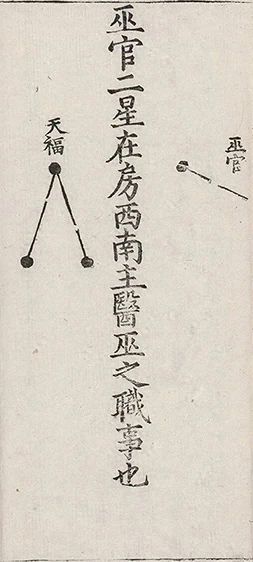 巫官
巫官二星在房西南主醫巫之職事也
天福